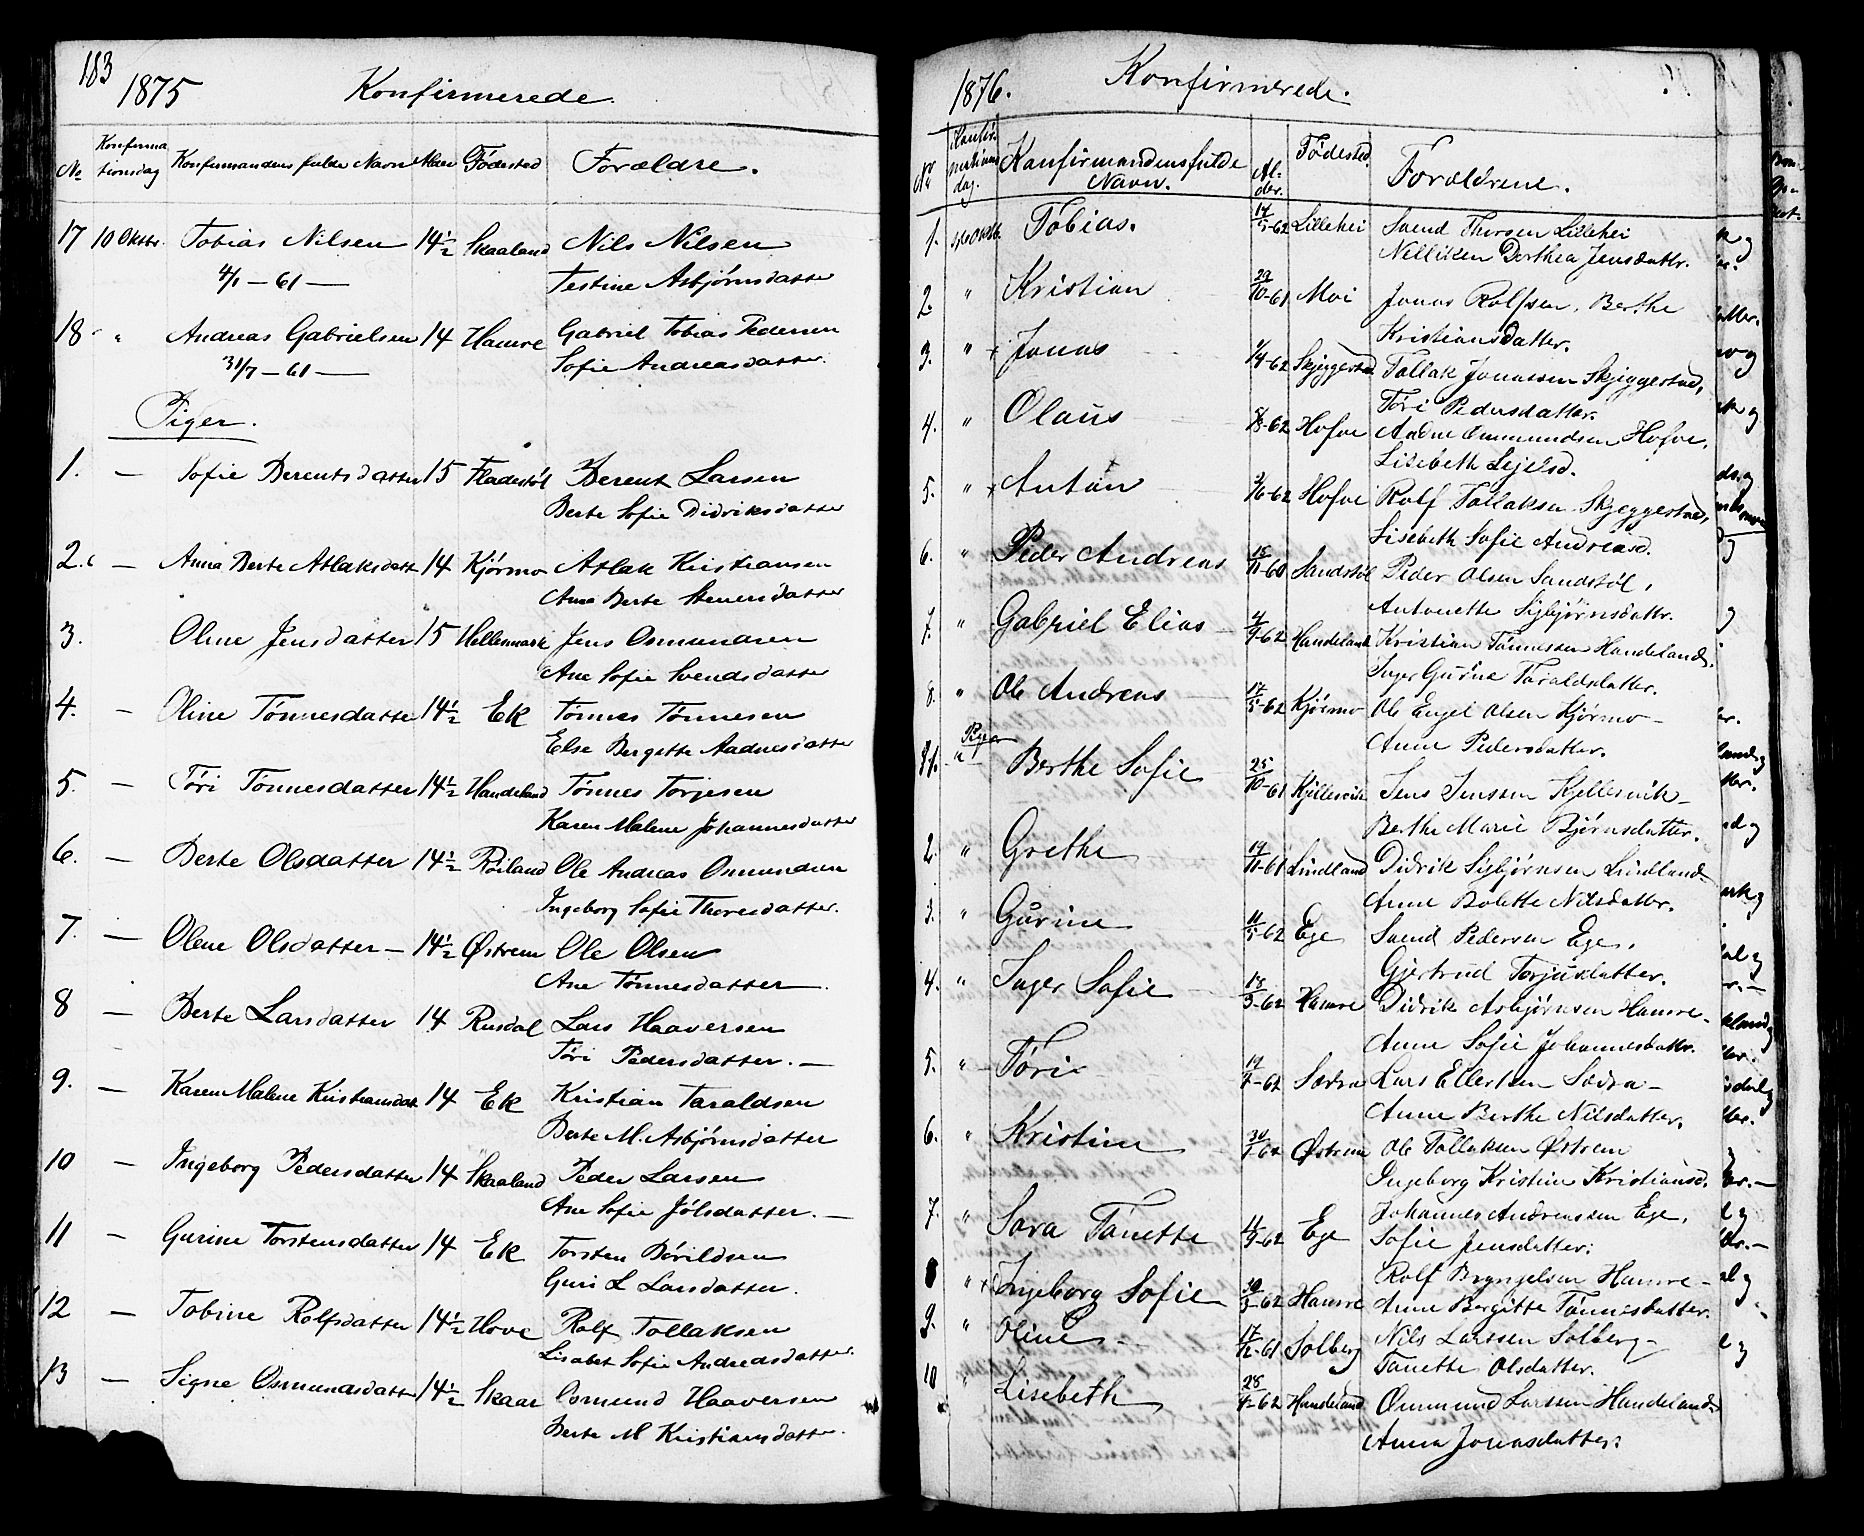 183
1875 Konfirmerede.
No Konfirmationsdag Konfirmandens fulde Navn Alder Fødested Forældre.
17 10 Oktbr. Tobias Nilsen 14½ Skaaland Nils Nilsen
4/1 – 61 — Testine Asbjørnsdatter
18 " Andreas Gabrielsen 14 Hamre Gabriel Tobias Pedersen
31/7 – 61 — Sofie Andreasdatter.
Piger.
1. — Sofie Berentsdatter 15 Fladestøl Berent Larsen
Berte Sofie Didriksdatter
2. — Anna Berte Atlaksdatt 14 Kjørmo Atlak Kristiansen
Ane Berte Stenersdatter
3. Oline Jensdatter 15 Hellesmark Jens Osmundsen
Ane Sofie Svendsdatter
4. — Oline Tønnesdatter 14½ Ek Tønnes Tønnesen
Else Bergette Aadnesdatter
5. — Tøri Tønnesdatter 14½ Handeland Tønnes Torjesen
Karen Malene Johannesdatter
6. — Berte Olsdatter 14½ Røiland Ole Andreas Osmundsen
Ingeborg Sofie Thoresdatter.
7. — Olene Olsdatter — 14½ Østrem Ole Olsen
Ane Tønnesdatter
8 — Berte Larsdatter 14 Rusdal Lars Haaversen
Tøri Pedersdatter. —
9. — Karen Malene Kristiansdat 14 Ek Kristian Taraldsen
Berte M. Asbjørnsdatter
10 — Ingeborg Pedersdatter 14 Skaaland Peder Larsen
Ane Sofie Jølsdatter. —
11 — Gurine Torstensdatter 14 Ek Torsten Børildsen
Guri L Larsdatter.
12 — Tobine Rolfsdatter 14½ Hove Rolf Tollaksen
Lisabet Sofie Andreasdatter.
13 — Signe Osmundsdatter 14½ Skaar Osmund Haaversen
Berte M Kristiansdatter.
1876. Konfirmerede.
No. Konfirmationsdag. Konfirmandens fulde Navn. Alder. Fødested. Forældrene.
1. Tobias. 14/5-62 Lillehei Svend Thorsen Lillehei
Nelliken Dorthea Jensdattr.
2. " Kristian 29/10-61 Moi Jonas Rolfsen, Berthe
Kristiansdatter.
3. " Jonas 1/4-62 Skjeggestad Tollak Jonassen Skjeggestad,
Tøri Pedersdatter.
4. " Olaus 8/8-62 Hofve Andne Ommundsen Hofve,
Lisebeth
5. " Anton 3/6-62 Hofve Rolf Tollaksen Skjeggestad,
Lisebeth Sofie Andreasd.
6. " Peder Andreas 15/11-60 Sandstøl Peder Olsen Sandstøl,
Antonette Sigbjørnsdattr.
7. " Gabriel Elias 4/9-62 Handeland Kristian Tønnessen Handeland.
Inger Gurine Taraldsdatter.
8. " Ole Andreas 17/5-62 Kjørmo Ole Engel Olsen Kjørmo —
Anne Pedersdatter.
Piger
1. " Berthe Sofie 25/10-61 Kjellesvik Jens Jenssen Kjellesvik —
Berthe Marie Bjørnsdatter.
2. " Grethe 19/11-61 Lindland Didrik Sigbjørnsen Lindland —
Anne Bolette Nilsdatter.
3. " Gurine 11/5-62 Ege Svend Pedersen Ege.
Gjertrud Torjusdatter.
4. " Inger Sofie 18/3-62 Hamre Didrik Asbjørnsen Hamre —
Anne Sofie Johannesdattr.
5. " Tøri 19/7-62 Sædra Lars Ellertsen Sædra —
Anne Berthe Nilsdatter.
6. " Kristine 30/7-62 Østrem Ole Tollaksen Østrem
Ingeborg Kristine Kristiansd.
7. " Sara Tanette 4/9-62 Ege Johannes Andreassen Ege,
Sofie Jensdatter.
8 " Ingeborg Sofie 30/3-62 Hamre Rolf Bryngelsen Hamre —
Anne Bergitte Tønnesdatter.
9. " Oline 17/12-61 Solberg Nils Larssen Solberg —
Tanette Olsdatter.
10 " Lisebeth 28/9-62 Handeland Ommund Larssen Handeland
Anna Jonasdatter.